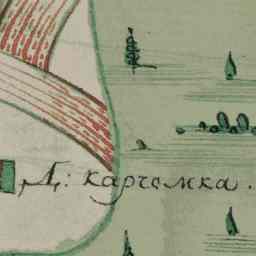 Д: карчомка.